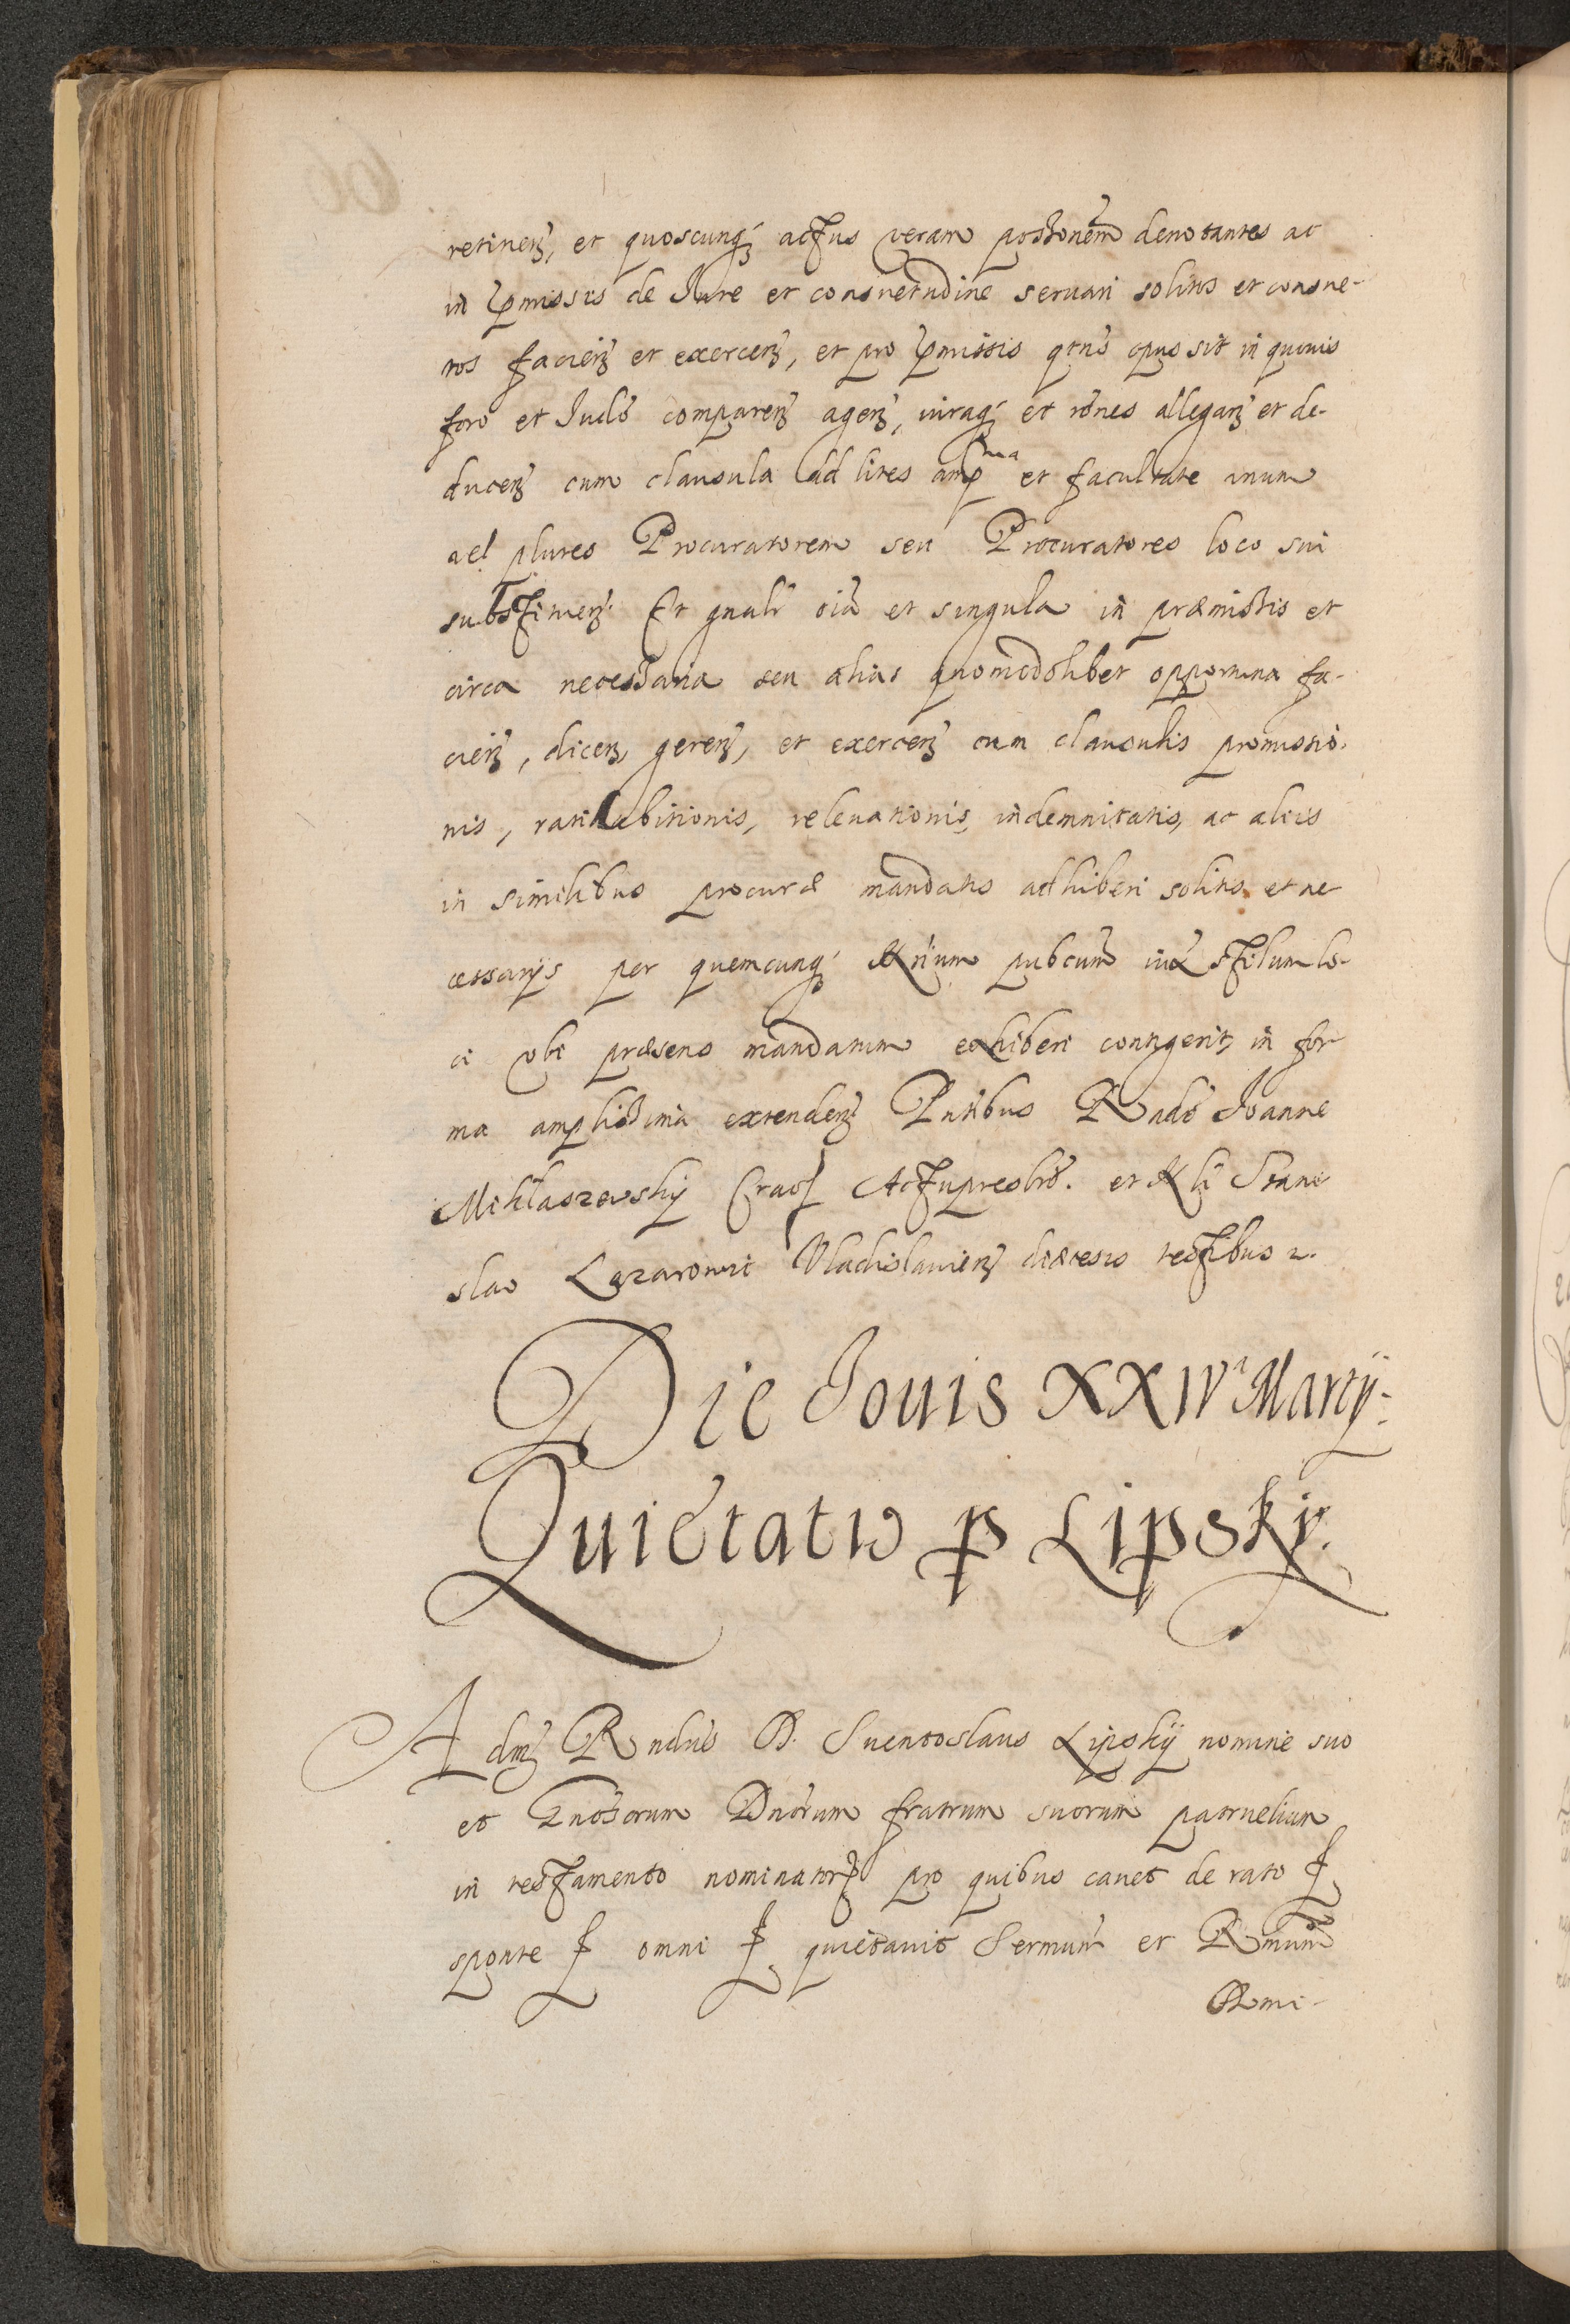 retinen, et quoscunq actus veram possionem denotantes ac
in pmissis de Jure et consuetudine seruari solitos et consue-
tos facien et exercen, et pro pmissis qtnus opus sit in quouis
foro et Judo comparen agen, iuraq et rones allegan et de-
ducen cum clausula ad lites amp et facultate unum
vel plures Procuratorem seu Procuratores loco sui
substituen. Et gnalr oia et singula in præmissis et
circa necessaria seu alias quomodolibet opportuna fa-
cien, dicen, geren, et exercen cum clausulis promissio-
nis, ratihabitionis, releuationis, indemnitatis, ac aliis
in similibus procuræ mandatis adhiberi solitis et ne
cessarys per quemcunq Nrium pubcum iux stilum lo-
ci vbi præsens mandatum exhiberi contigerit, in for
ma amplissima extenden Pntibus Rndo Joanne
Miklaszewsky Crac Actupresbro. et Nli Stani
slao Lazarowic Vladislauien diæcesis testibus
Die Jouis XXIVa Marty.
Quietatio p Lipsky.
Adm Rndus D. Suentoslaus Lipsky nomine suo
et Gnosorum Dnorum fratrum suorum patruelium
in testamento nominator pro quibus cauet de rato
sponte omni quietauit Sermum et Rmum
Dmi-